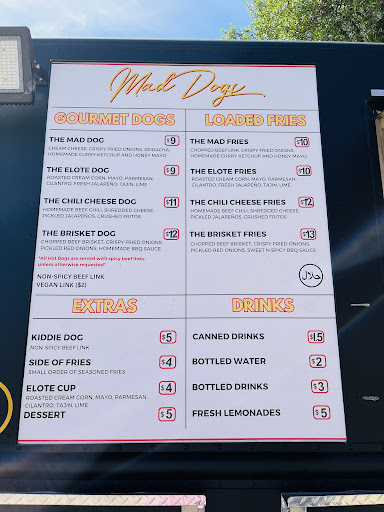 Mad Dogs
GOURMET DOGS
THE MAD DOG $9
CREAM CHEESE, CRISPY FRIED ONIONS, SRIRACHA,
HOMEMADE CURRY KETCHUP AND HONEY MAYO
THE ELOTE DOG $9
ROASTED CREAM CORN, MAYO, PARMESAN,
CILANTRO, FRESH JALAPEÑO, TAJIN, LIME
THE CHILI CHEESE DOG $11
HOMEMADE BEEF CHILI, SHREDDED CHEESE
PICKLED JALAPEÑOS, CRUSHED FRITOS
THE BRISKET DOG $12
CHOPPED BEEF BRISKET, CRISPY FRIED ONIONS,
PICKLED RED ONIONS, HOMEMADE BBQ SAUCE
*All Hot Dogs are served with spicy beef links
unless otherwise requested*
NON-SPICY BEEF LINK
VEGAN LINK ($2)
LOADED FRIES
THE MAD FRIES $10
CHOPPED BEEF LINK, CRISPY FRIED ONIONS,
HOMEMADE CURRY KETCHUP AND HONEY MAYO
THE ELOTE FRIES $10
ROASTED CREAM CORN, MAYO, PARMESAN,
CILANTRO, FRESH JALAPEÑO, TAJIN, LIME
THE CHILI CHEESE FRIES $12
HOMEMADE BEEF CHILI, SHREDDED CHEESE,
PICKLED JALAPENOS, CRUSHED FRITOS
THE BRISKET FRIES $13
CHOPPED BEEF BRISKET, CRISPY FRIED ONIONS,
PICKLED RED ONIONS, SWEET N SPICY BBQ SAUCE
حلال
EXTRAS
KIDDIE DOG $5
NON-SPICY BEEF LINK
SIDE OF FRIES $4
SMALL ORDER OF SEASONED FRIES
ELOTE CUP $4
ROASTED CREAM CORN, MAYO, PARMESAN,
CILANTRO, TAJIN, LIME
DESSERT $5
DRINKS
CANNED DRINKS $1.5
BOTTLED WATER $2
BOTTLED DRINKS $3
FRESH LEMONADES $5